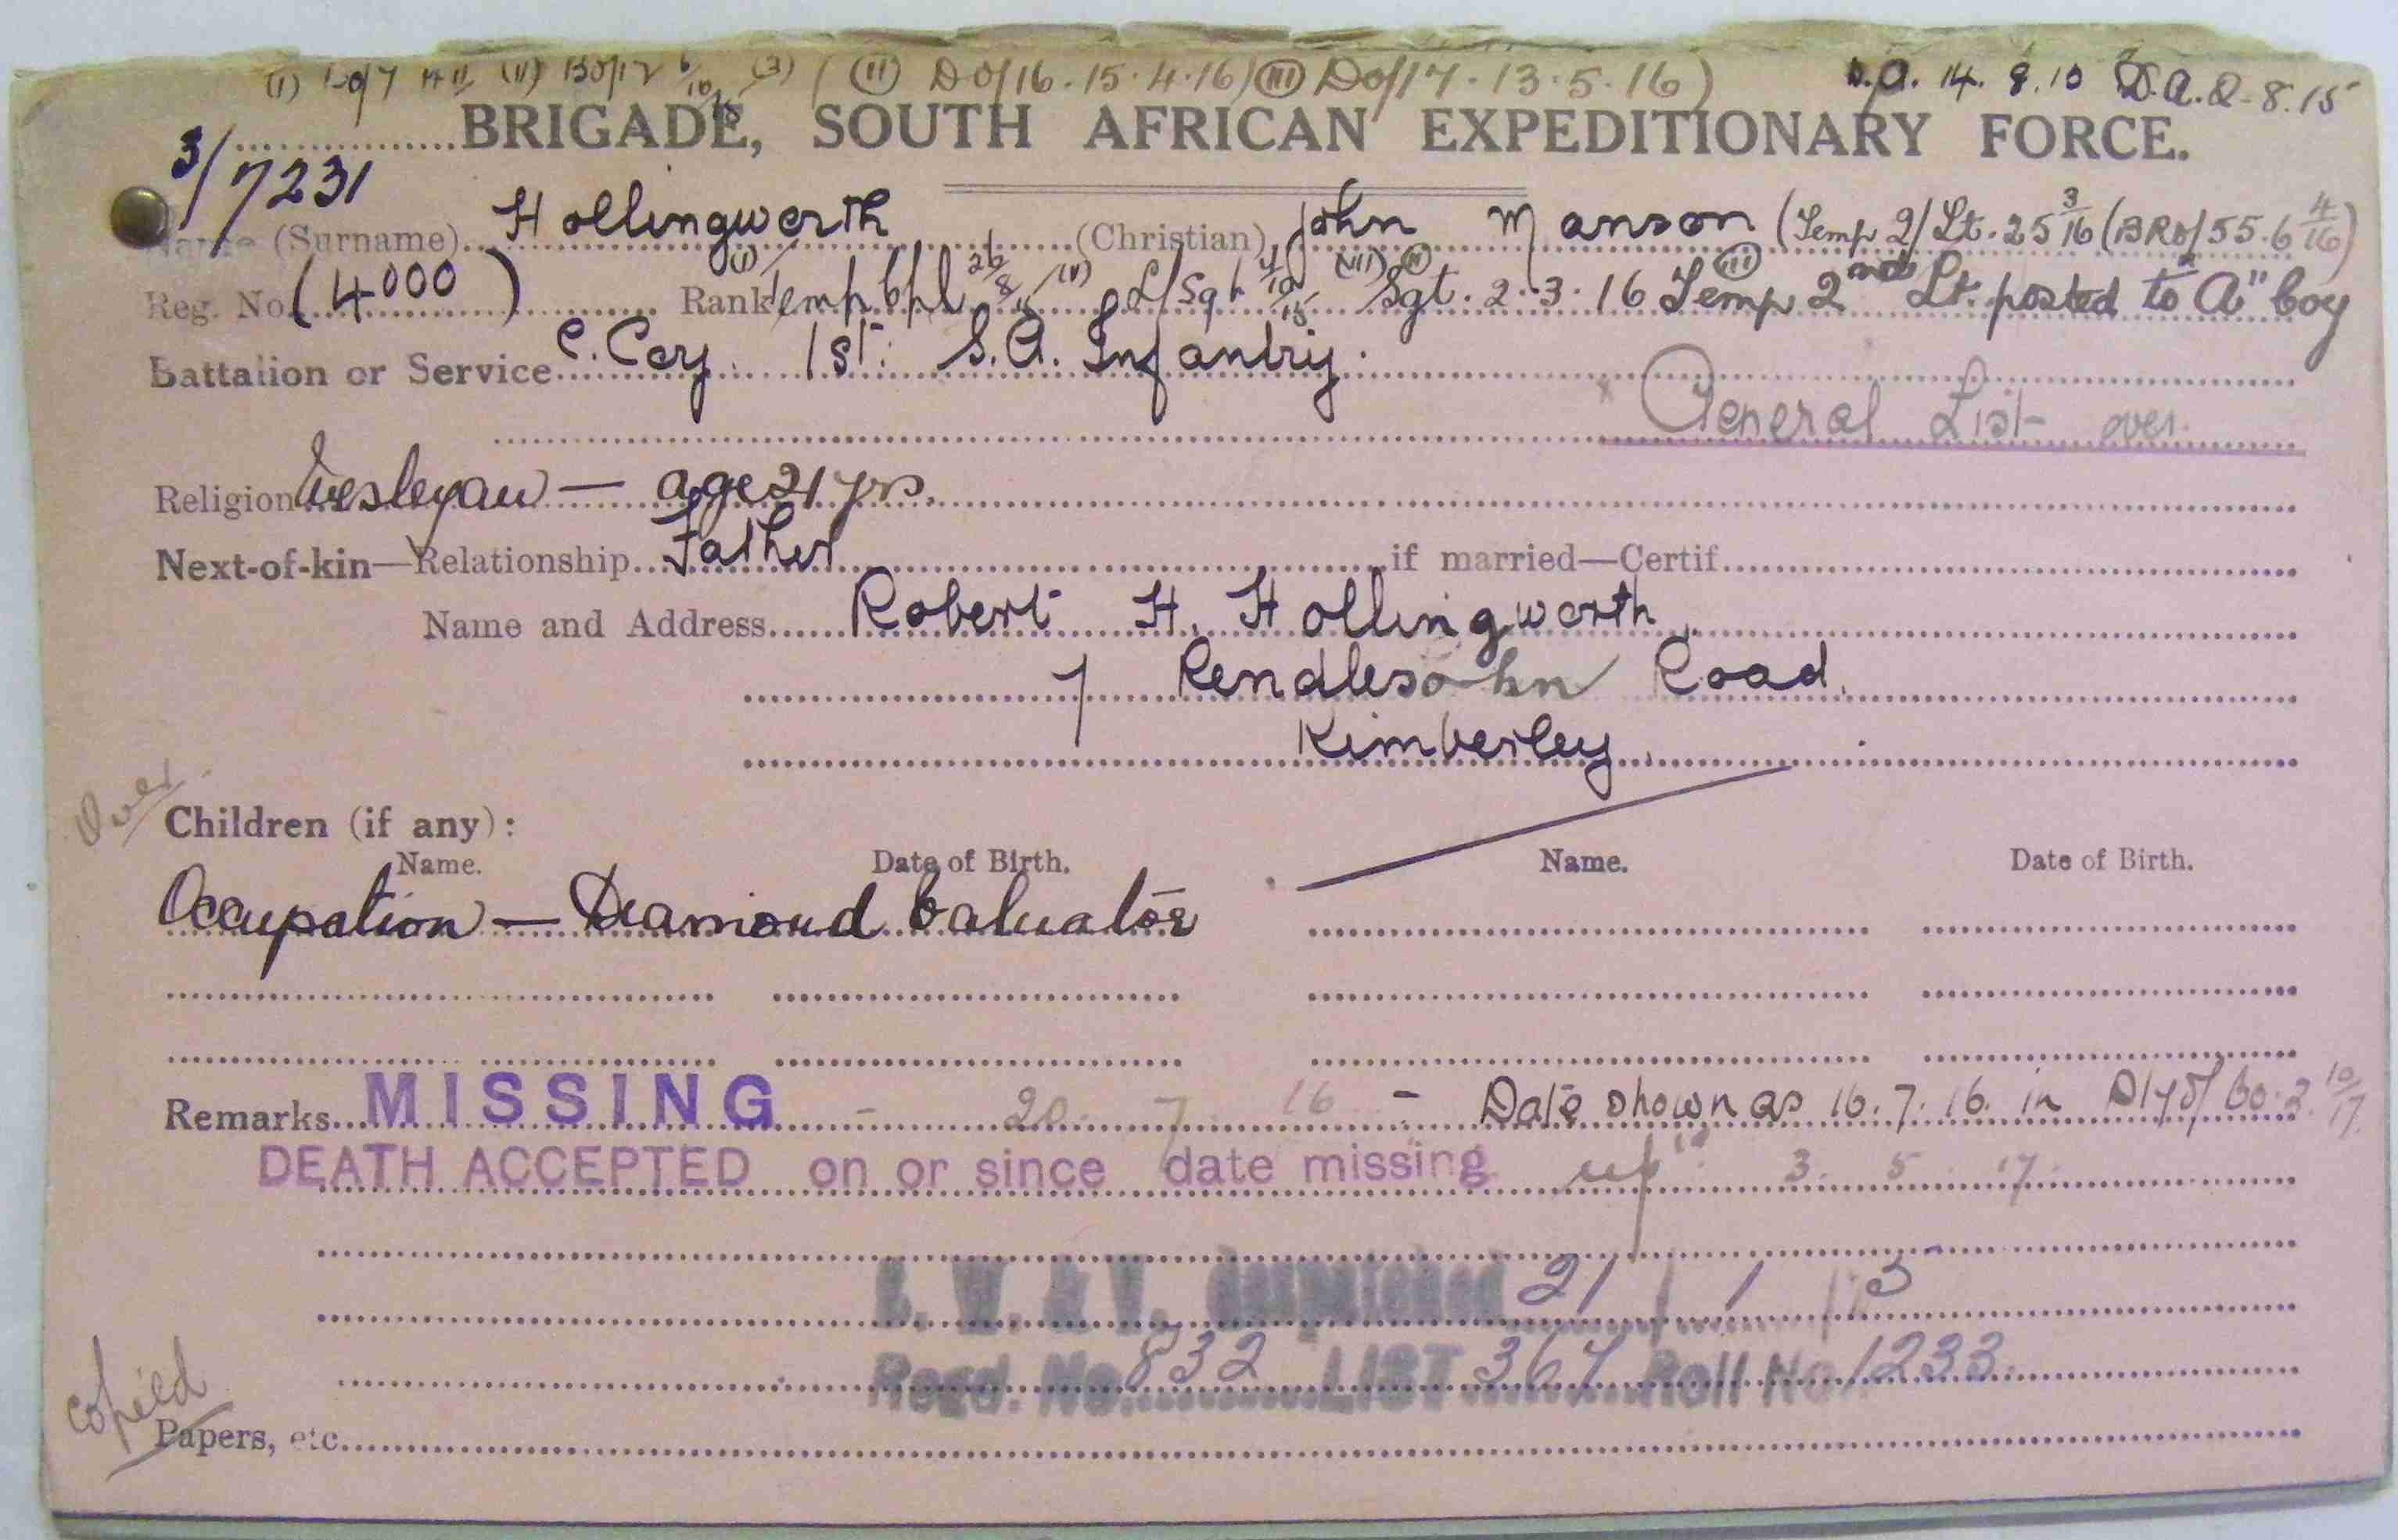 (1) (11) (3) (11) DO/16 . 15 . 4 . 16) (111) DO/17 . 13 . 5 . 16) D.A. 14. 8.15 D.A.Q-8.15
BRIGADE, SOUTH AFRICAN EXPEDITIONARY FORCE.
3/7231
Name (Surname) Hollingworth (Christian) John Manson (Temp 2/Lt. 25 3/16 (BRO/55. 6 4/16)
Reg. No. (4000) Rank Temp Cpl (1) 26/8 (11) L/Sgt (111) Sgt. 2.3.16 (111) Temp 2nd Lt. posted to "A" Coy
Battalion or Service C. Coy. 1st. S.A. Infantry.
General List over
Religion Wesleyan — age 21 yrs.
Next-of-kin—Relationship Father if married—Certif.
Name and Address Robert H. Hollingworth.
7 Road.
Kimberley.
Over.
Children (if any):
Name. Date of Birth. Name. Date of Birth.
Occupation — Diamond Valuator
Remarks MISSING - 20. 7. 16 - Date shown as 16.7.16. in 10/17.
DEATH ACCEPTED on or since date missing 3. 5. 17.
B. W. & V. despatched 21
Regd. No. 832 LIST 367 Roll No 1233.
copied
Papers, etc.